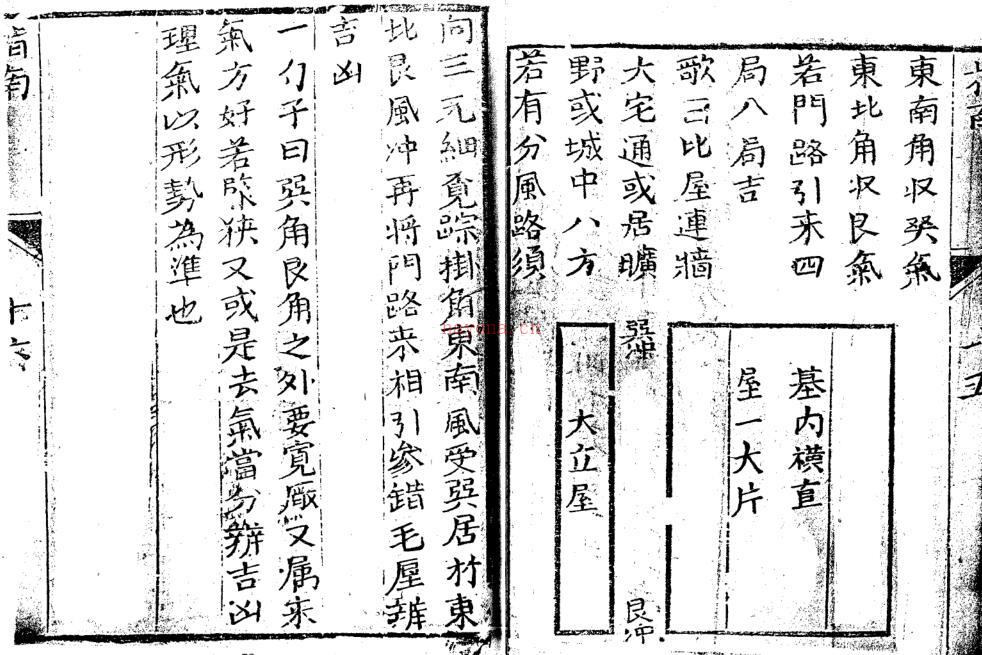 東南角収癸氣
東北角収艮氣
若門路引来四
局八局吉
歌曰比屋連牆
大宅通或居曠
野或城中八方
若有分風路須
基内横直
屋一大片
巽冲
艮冲
大立屋
十五
向三元細覓踪掛角東南風受巽居於東
北艮風冲再将門路来相引参錯毛厘辨
吉凶
一勺子曰巽角艮角之外要寛廠又属来
氣方好若隘狭又或是去氣當分辨吉凶
理氣以形勢為準也
指南
十六